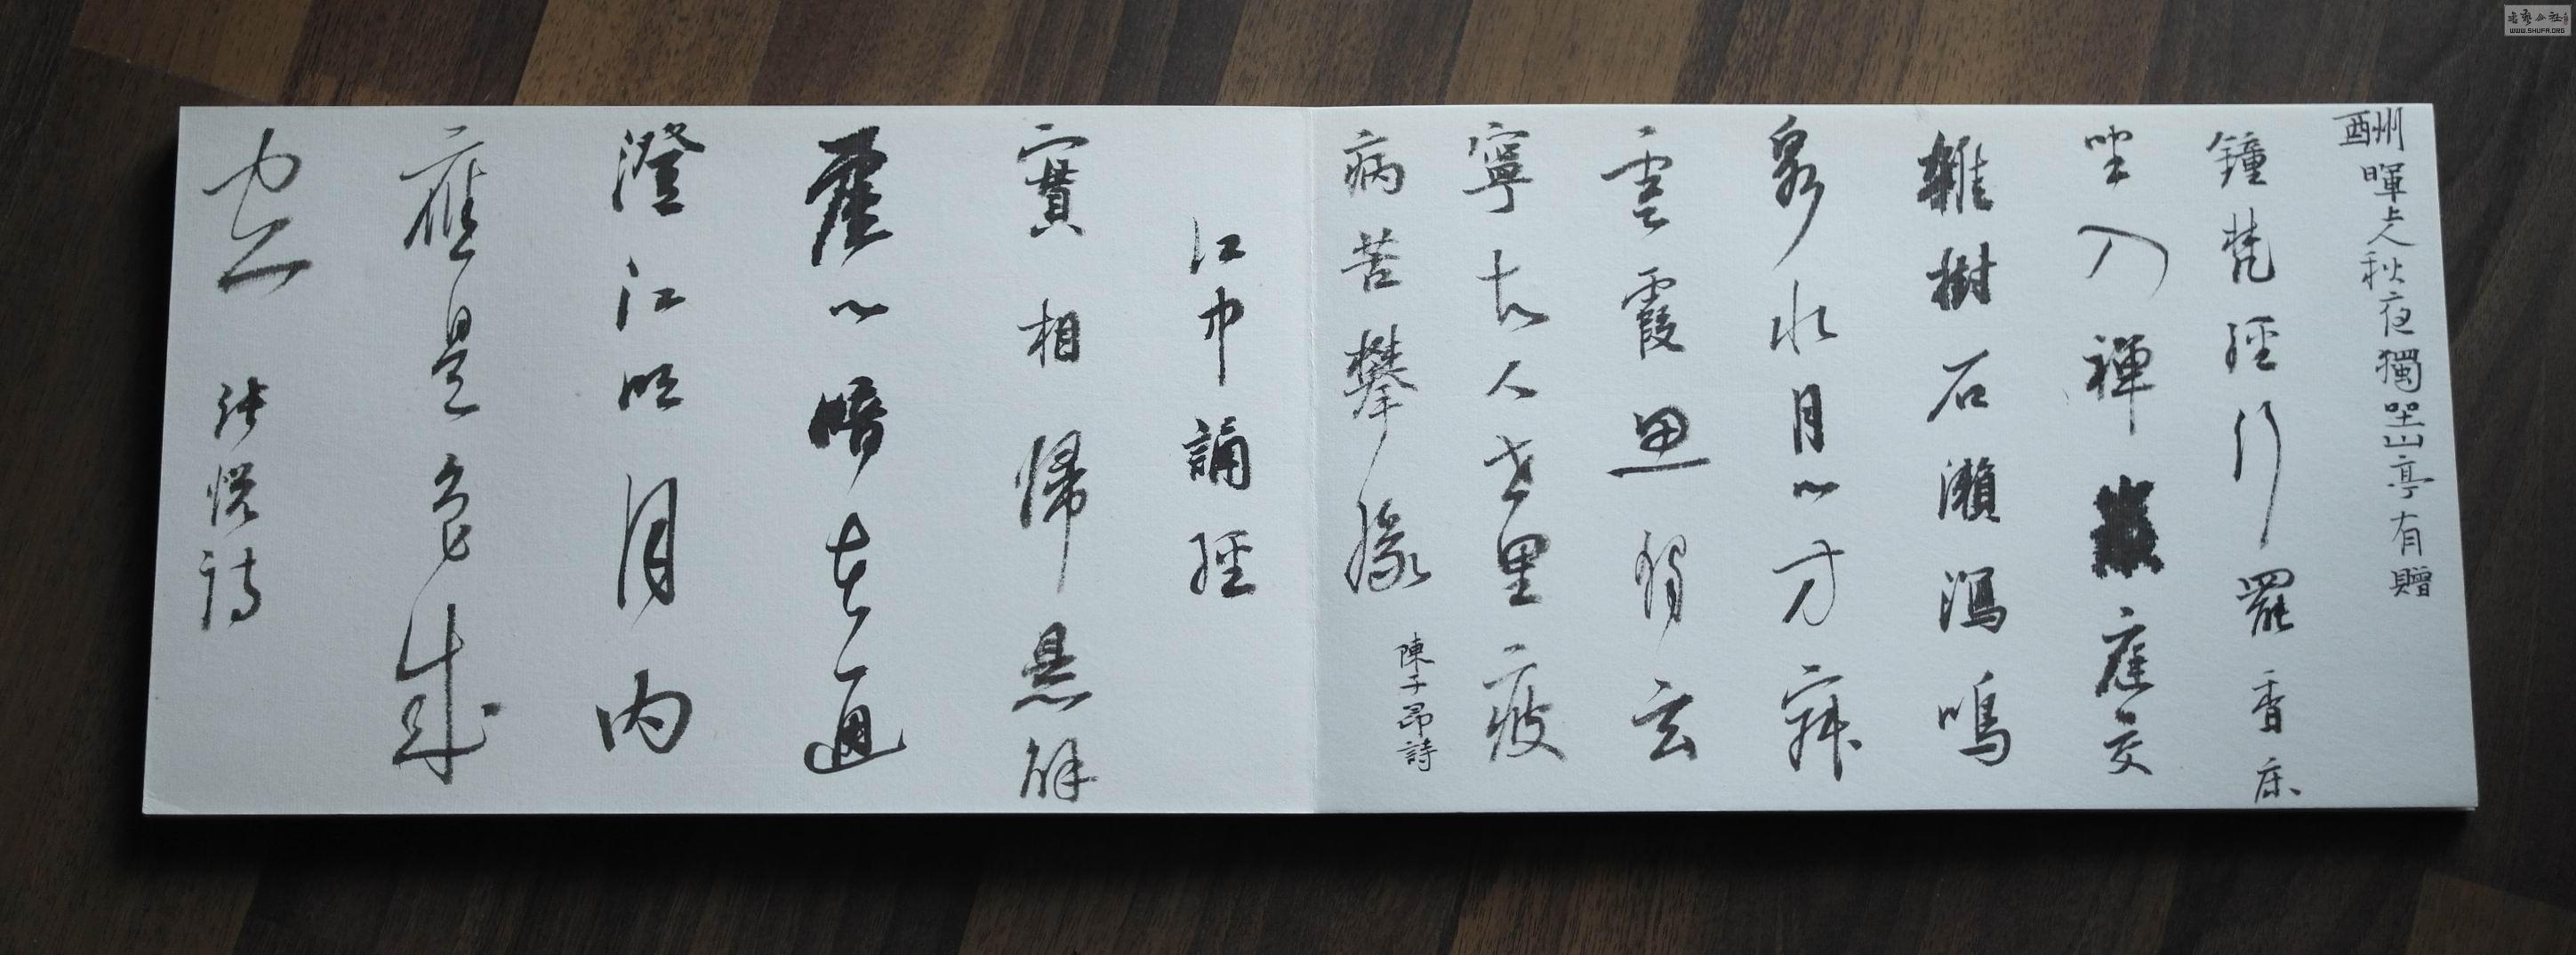 酬暉上人秋夜獨坐山亭有贈
鐘梵經行罷香床
坐入禪庭交
雜樹石瀨瀉鳴
泉水月心方寂
雲霞思獨玄
寧知人世里疲
病苦攀緣
陳子昂詩
江中誦經
實相歸懸解
虛心暗在通
澄江明月內
應是色成
空 張說詩
WWW.SHUFA.ORG